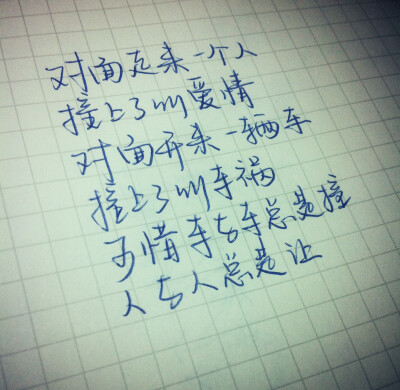 对面走来一个人
撞上了叫爱情
对面开来一辆车
撞上了叫车祸
可惜车与车总是撞
人与人总是让